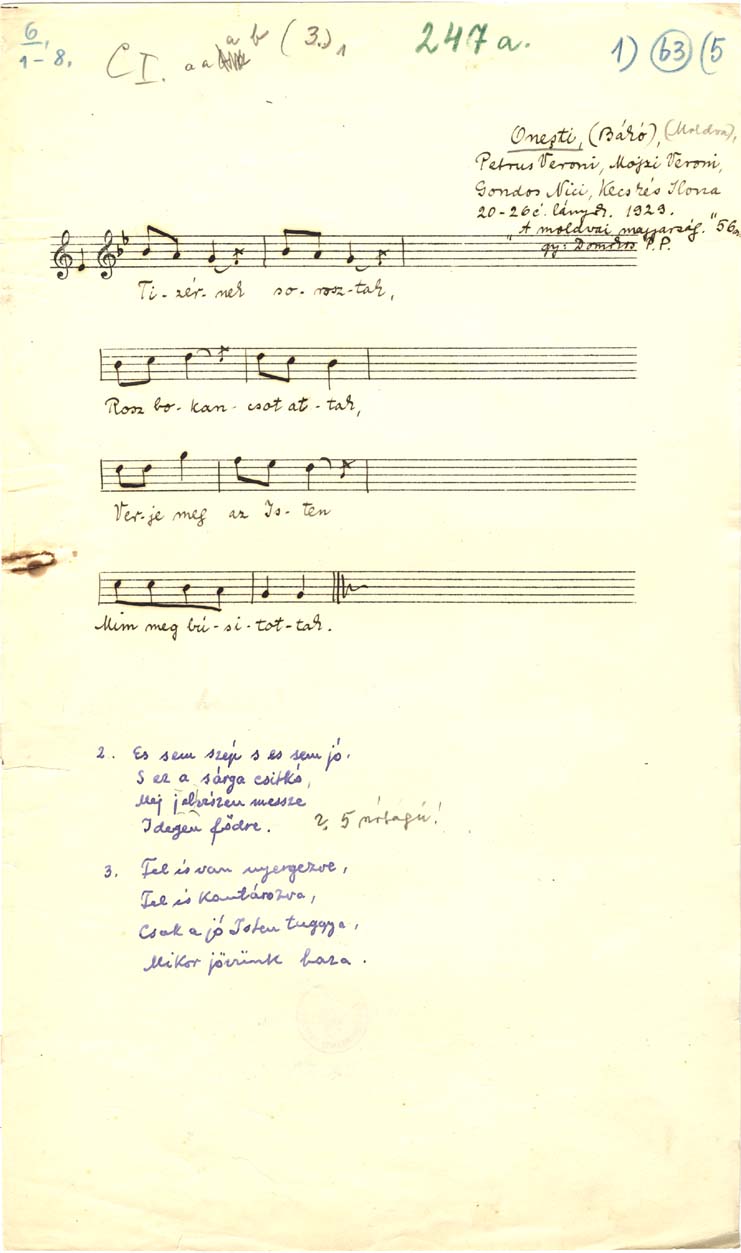 6,
1-8.
C I. a a a b (3.) 1
247a.
1) 63 (5
Oneşti, (Bákó), (Moldva),
Petrus Veroni, Mojzi Veroni,
Gondos Nici, Kecskés Ilona
20-26 é. lányok. 1929.
"A moldvai magyarság." 56
gy: Domokos P.P.
Ti-zér-nek so-rosz-tak,
Rosz bo-kan-csot at-tak,
Ver-je meg az Is-ten
Mim meg bú-si-tot-tak.
2. Es sem szép s es sem jó.
S ez a sárga csitkó,
Mej jelviszen messze
Idegen födre. 5
3. Fel is van nyergezve,
Fel is kantározva,
Csak a jó Isten tuggya,
Mikor jövünk haza.